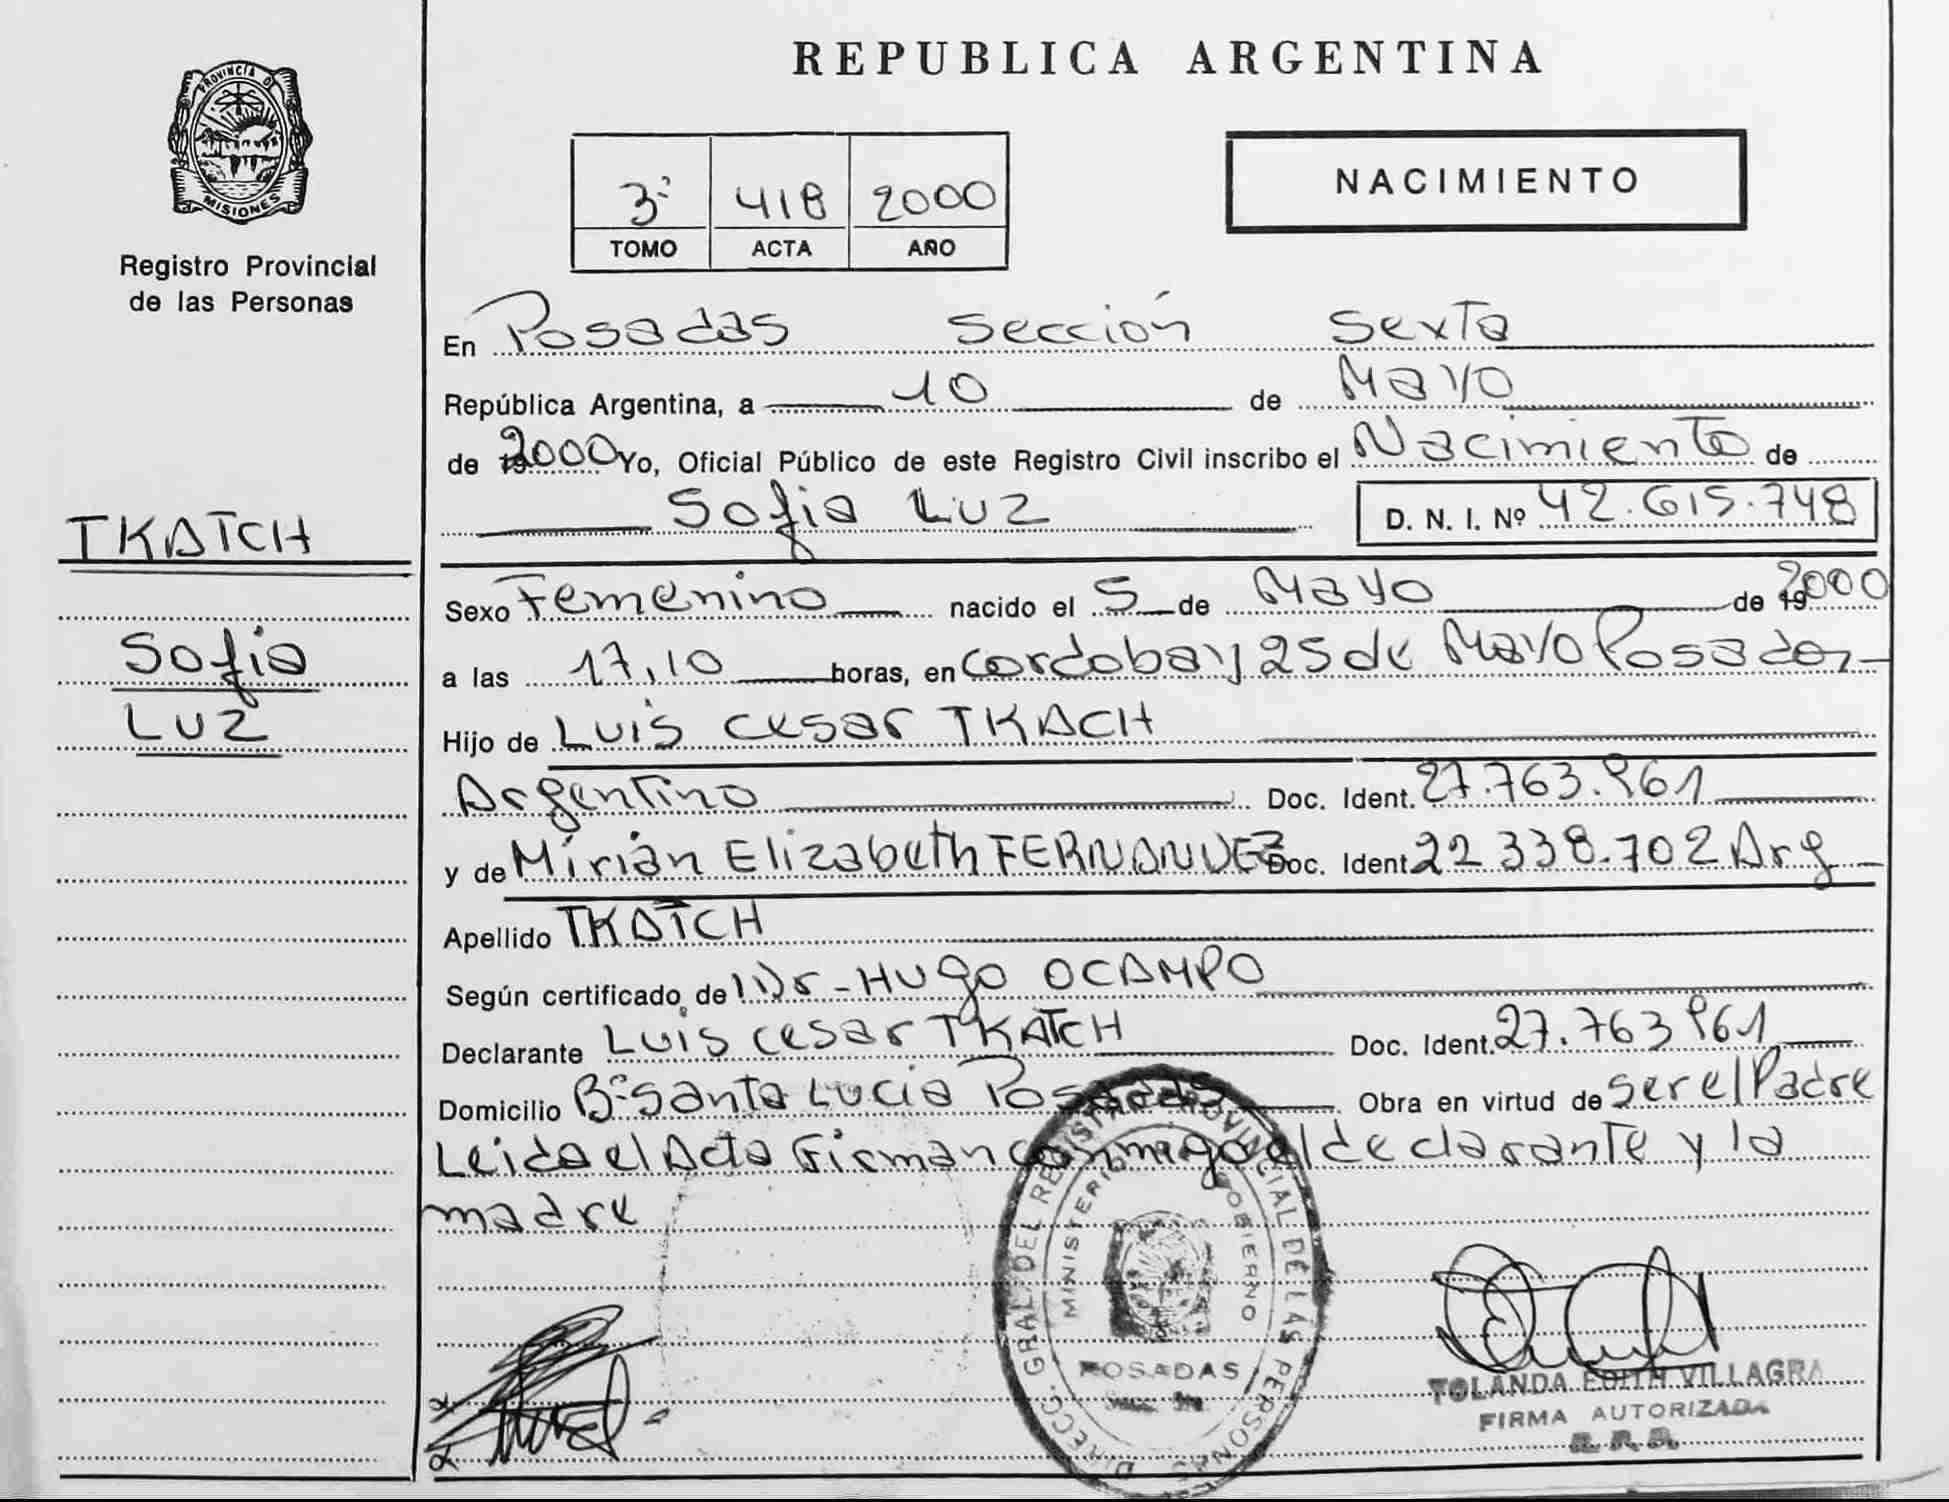 REPUBLICA ARGENTINA
PROVINCIA DE
MISIONES
Registro Provincial
de las Personas
3º 418 2000
TOMO ACTA AÑO
NACIMIENTO
En Posadas Sección Sexta
República Argentina, a 10 de Mayo
de 2000 Yo, Oficial Público de este Registro Civil inscribo el Nacimiento de
Sofia Luz D. N. I. Nº 42.615.748
TKATCH
Sofia
Luz
Sexo Femenino nacido el 5 de Mayo de 2000
a las 17,10 horas, en Cordoba y 25 de Mayo Posadas
Hijo de Luis Cesar TKACH
Argentino Doc. Ident. 27.763.961
y de Mirian Elizabeth FERNANDEZ Doc. Ident. 22 338.702 Arg
Apellido TKATCH
Según certificado de Dr - HUGO OCAMPO
Declarante Luis Cesar TKATCH Doc. Ident. 27.763 961
Domicilio Bº Santa Lucia Posadas Obra en virtud de ser el Padre
Leida el Acta Firman conmigo el declarante y la
madre
DIRECC. GRAL. DEL REGISTRO PROVINCIAL DE LAS PERSONAS
MINISTERIO GOBIERNO
POSADAS
YOLANDA EDITH VILLAGRA
FIRMA AUTORIZADA